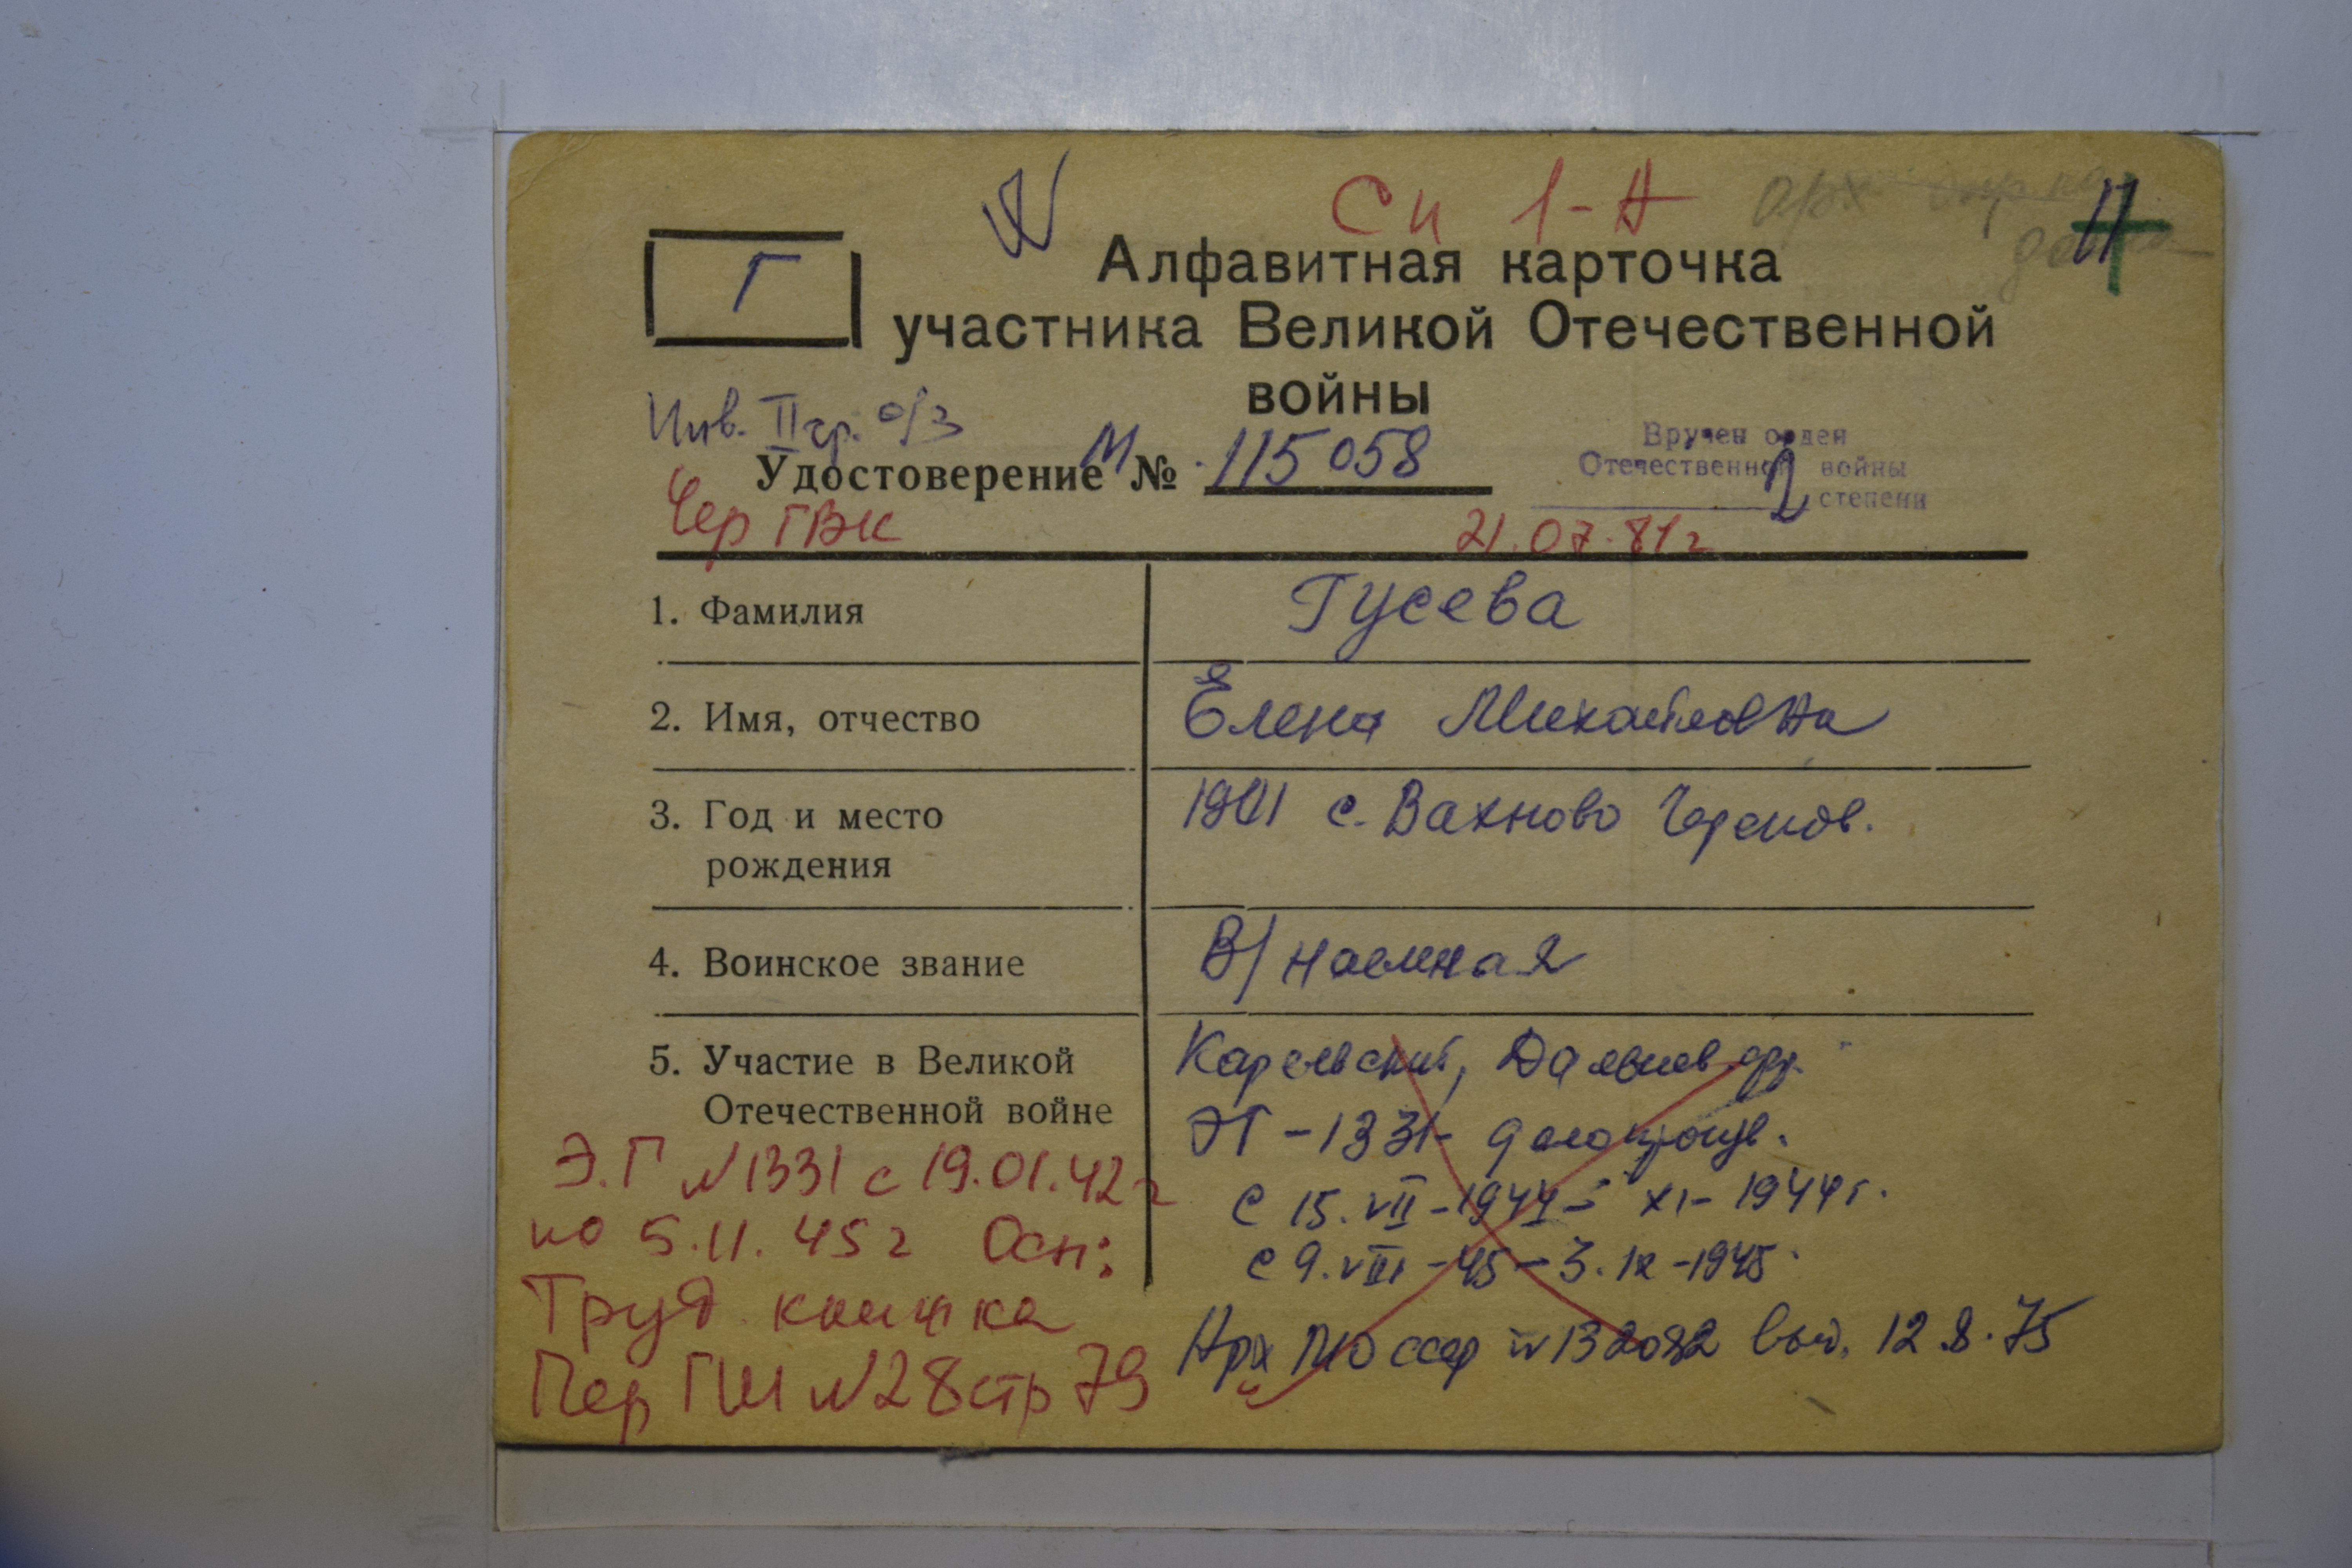 Си 1-Н
Арх
Г
Алфавитная карточка
участника Великой Отечественной
войны
Инв. II гр. о/з
Удостоверение М № 115058
Вручен орден
Отечественной войны
2 степени
Чер ГВК
21.07.81г
1. Фамилия Гусева
2. Имя, отчество Елена Михайловна
3. Год и место с. Вахново Черепов.
рождения
4. Воинское звание В/наемная
5. Участие в Великой Карельский,
Отечественной войне ЭГ-1331- делопроизв.
Э.Г №1331 с 19.01.42г
С 15.VII-1944- XI-1944г.
по 5.11.45г Осн:
с 9.VIII-45-3.IX-1945.
Труд книжка
Арх МО ссср №132082 выд. 12.8.75
Пер ГШ №28 стр 79